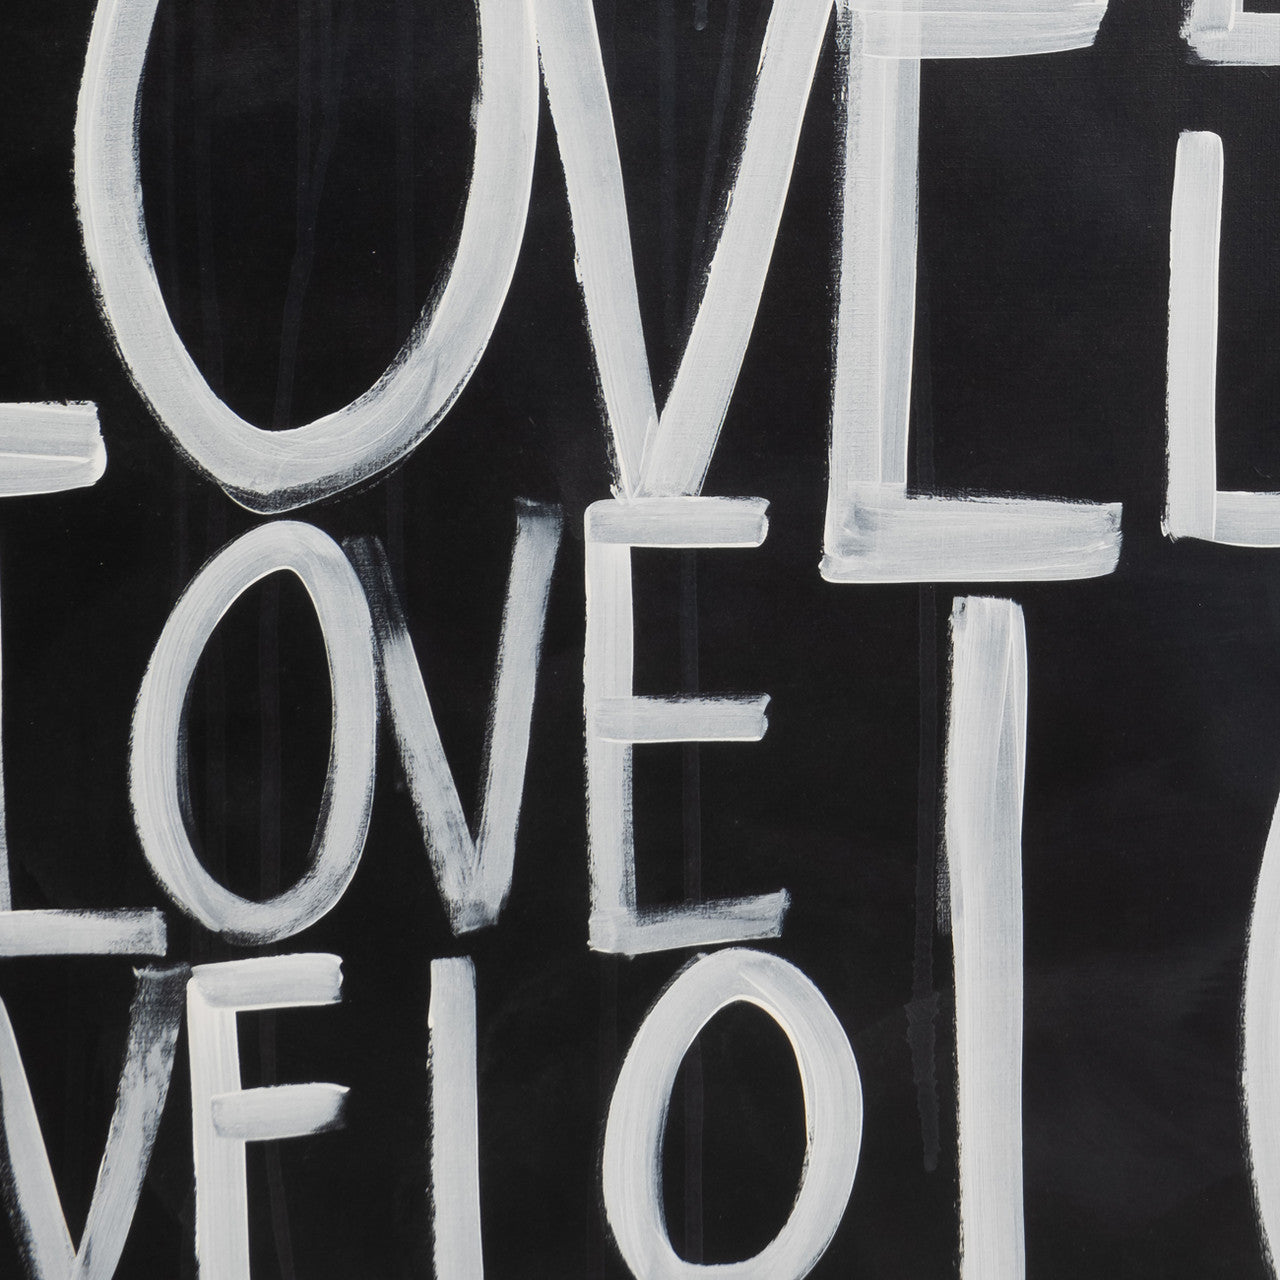 LOVE L
LOVE L
VE LO